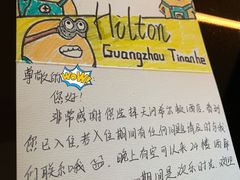 Hilton
Guangzhou Tianhe
尊敬的 WOW
您好!
非常感谢您选择天河希尔顿酒店,看到
您已入住,若入住期间有任何问题请及时与我
们联系哦,晚上有空可以来24楼酒
期间是欢乐时光,欢迎